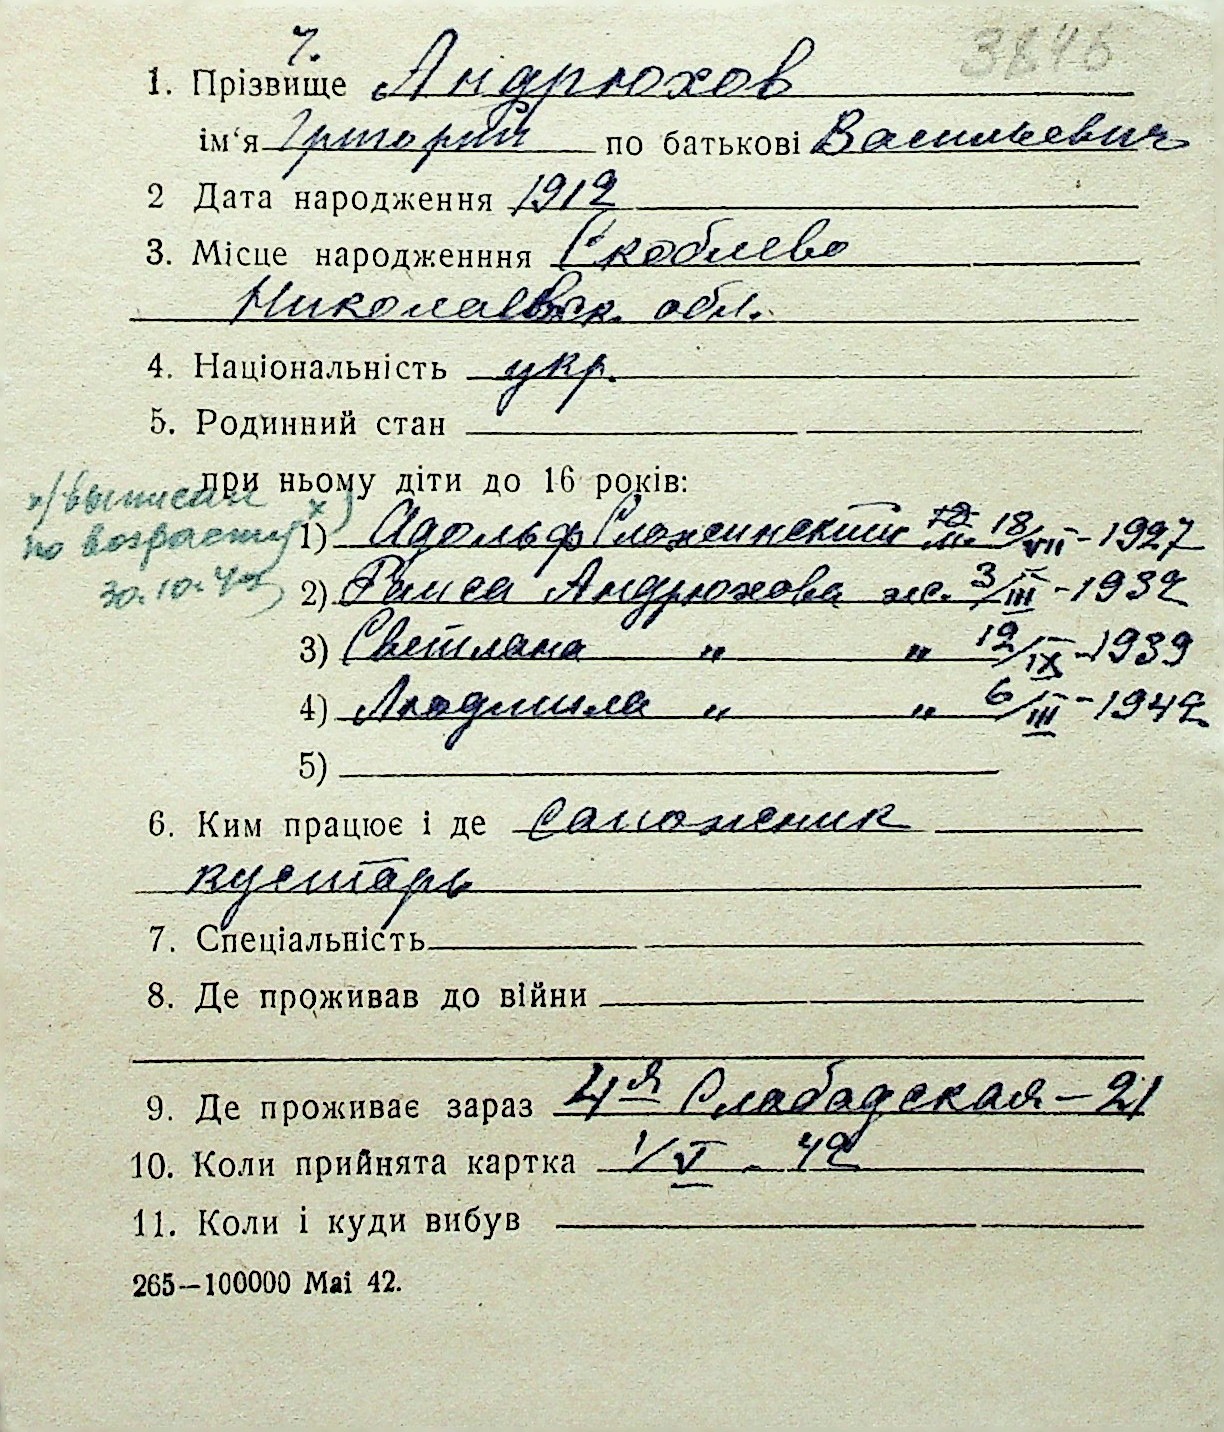 7. 3846
1. Прізвище Андрюхов
ім'я Григорий по батькові Васильевич
2 Дата народження 1912
3. Місце народженння Скоблево
Николаевск. обл.
4. Національність укр.
5. Родинний стан
при ньому діти до 16 років:
х) выписан
по возрасту
30.10.42
х)
1) Адольф Сложсинский м. 18/VII - 1927
2) Раиса Андрюхова ж. 3/III - 1932
3) Светлана " " 12/IX - 1939
4) Людмила " " 6/III - 1942
5)
6. Ким працює і де сапожник
кустарь
7. Спеціальність
8. Де проживав до війни
9. Де проживає зараз 4я Слабадская - 21
10. Коли прийнята картка 1/V - 42
11. Коли і куди вибув
265—100000 Mai 42.